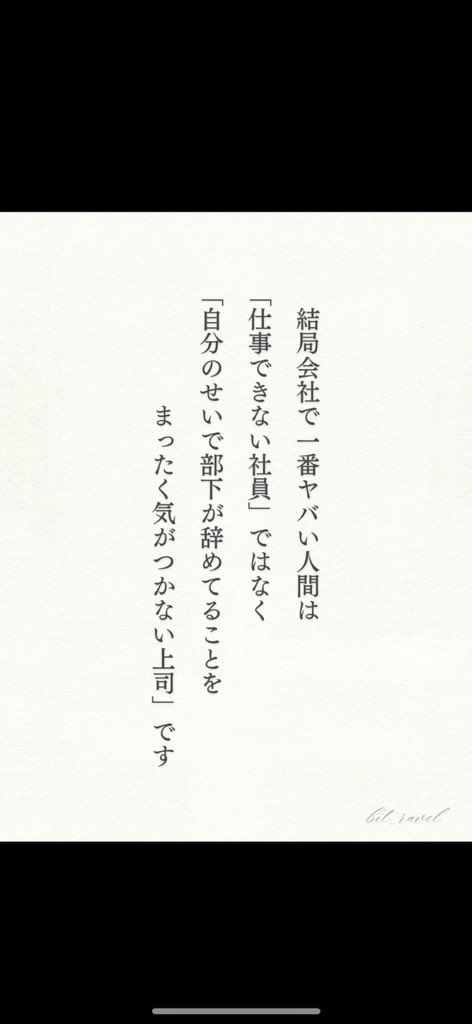 結局会社で一番ヤバい人間は
「仕事できない社員」ではなく
「自分のせいで部下が辞めてることを
まったく気がつかない上司」です
bit_ravel